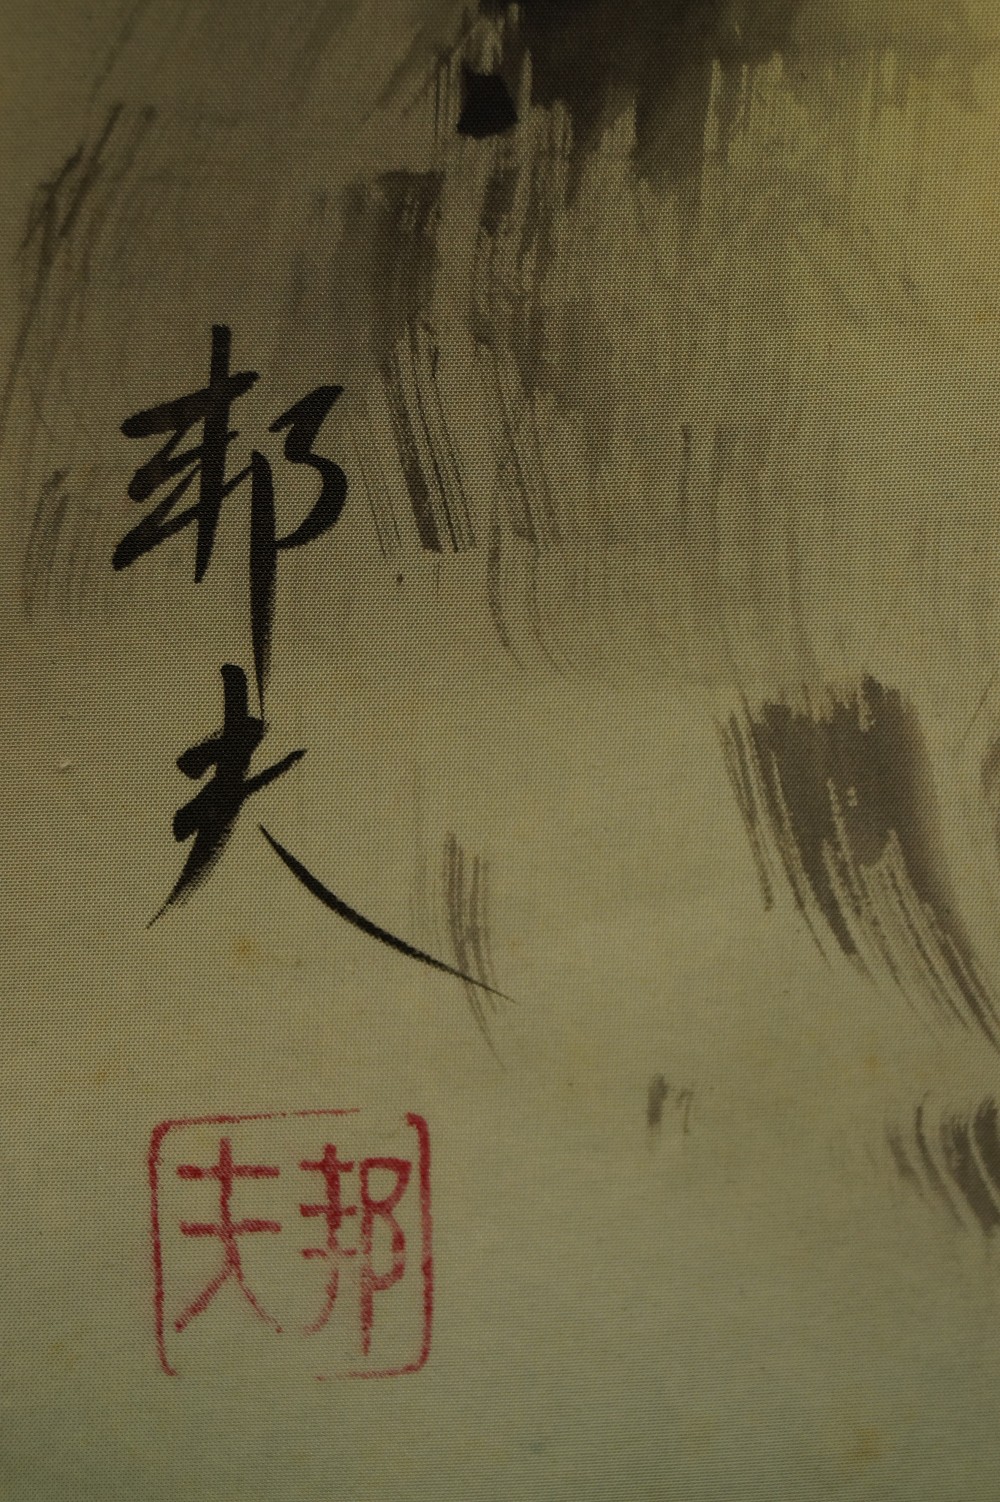 邦夫
邦夫